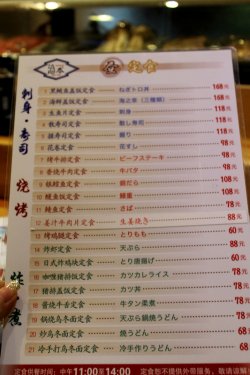 定食
刺身·寿司
烧烤
炸·煮
2 海鲜盖饭定食 海之幸(三種類) 168元
3 生鱼片定食 刺身 118元
4 散寿司定食 散し寿司
5 握寿司定食 握り
6 花卷定食 花すし
7 烤牛排定食 ビーフステーキ
8 香烧牛肉定食 牛バタ
9 银鳕鱼定食 銀だら
10 鳗鱼饭定食 鰻重
11 鲭鱼定食 さば 78元
12 姜汁牛肉片定食 生姜焼き 88元
13 烤鸡腿定食 とりもも 60元
14 炸虾定食 天ぷら 88元
15 日式炸鸡块定食 とり唐揚げ 60元
16 咖喱猪排饭定食 カツカレライス 68元
17 猪排盖饭定食 カツ丼 78元
18 酱烧牛舌定食 牛タン柔煮 78元
19 锅烧乌冬面定食 天ぷら鍋焼うどん 68元
20 炒乌冬面定食 焼うどん 68元
21 冷手打乌冬面定食 冷手作りうどん 60元
定食供餐时间:中午11:00至14:00 定食包不提供外带服务,敬请谅解